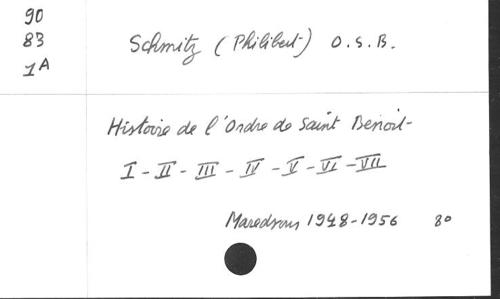 90
83
1A
Schmitz (Philibert) O.S.B.
Histoire de l'Ordre de Saint Benoit-
I - II - III - IV - V - VI - VII
Maredsous 1948-1956 8o